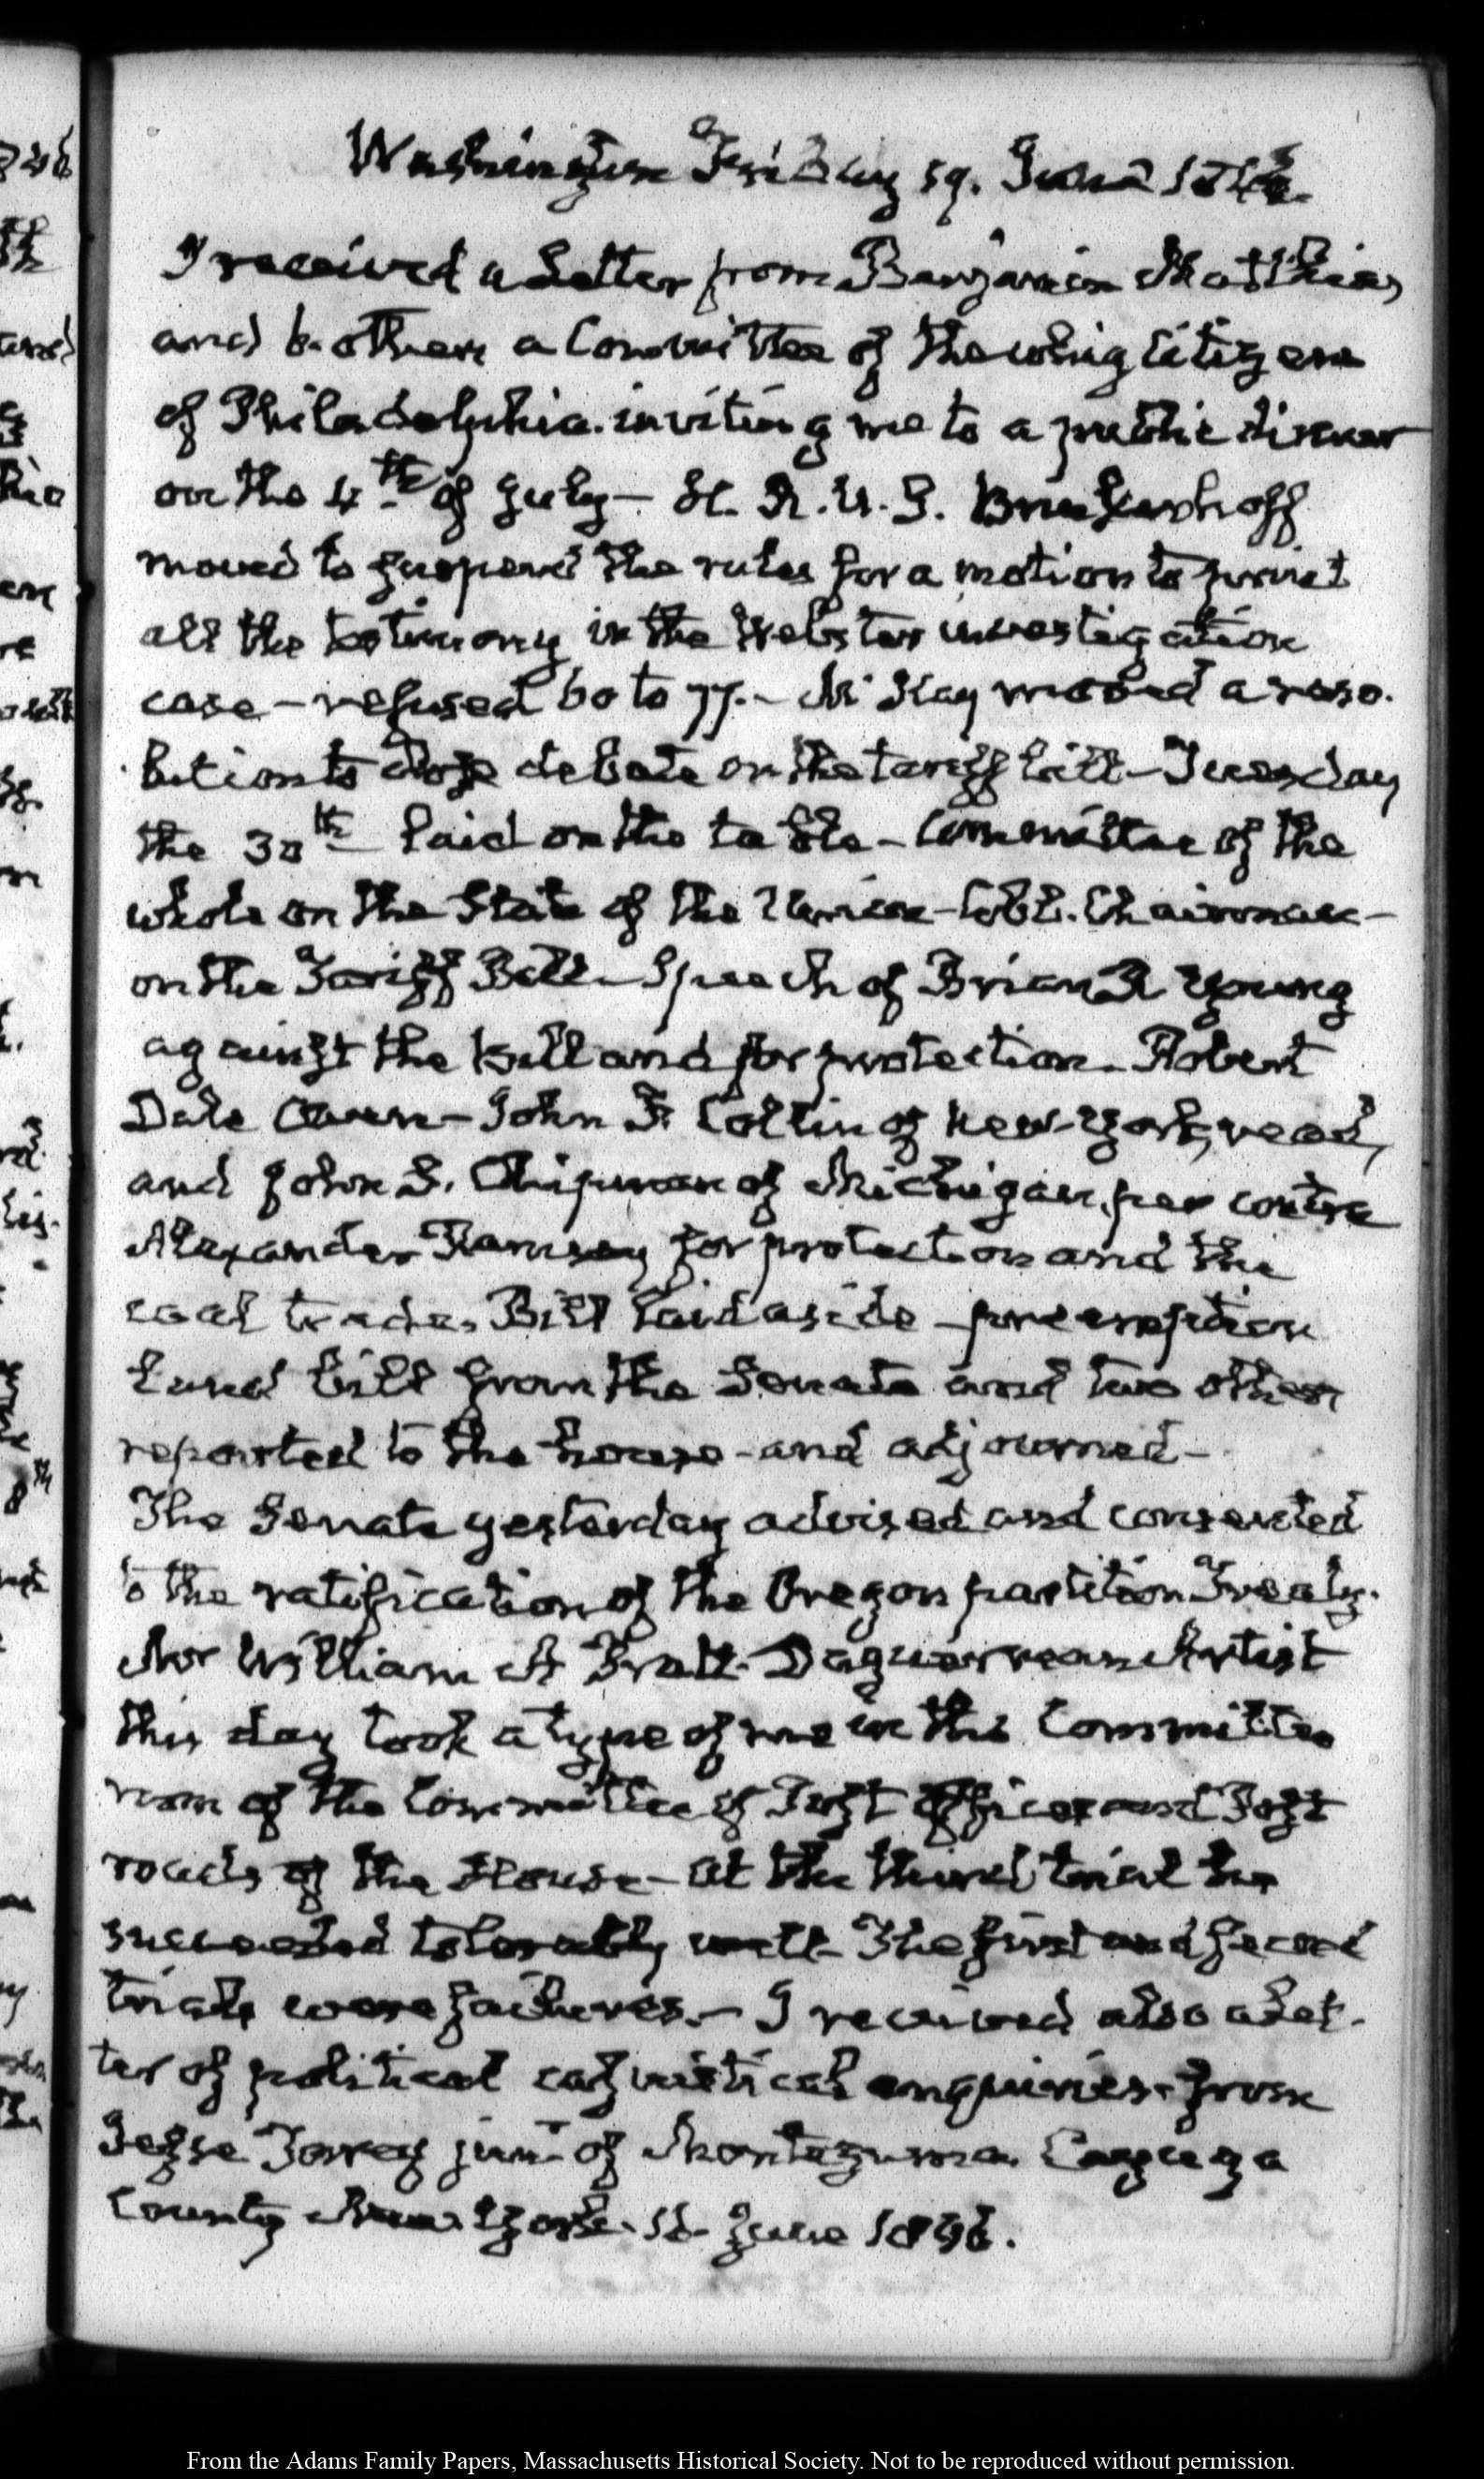 Washington Friday 19. June 1846.
I received a Letter from Benjamin Matthias
and 6. others a Committee of the whig Citizens
of Philadelphia. inviting me to a public dinner
on the 4th of July — H. R. U. S. Brinkerhoff
moved to suspend the rules for a motion to print
all the testimony in the Webster investigation
case — refused 60 to 77. — McKay moved a reso-
lution to close debate on the tariff bill — Tuesday
the 30th laid on the table — Committee of the
whole on the State of the Union — Cobb. Chairman —
on the Tariff Bill — Speech of Brian R Young
against the bill and for protection. Robert
Dale Owen — John F. Collin of New-York, read,
and John S. Chipman of Michigan, per contra
Alexander Ramsey for protection and the
coal trade. Bill laid aside — preemption
Land bill from the Senate and two others
reported to the house — and adjourned —
The Senate yesterday advised and consented
to the ratification of the Oregon partition Treaty.
Mr William A Pratt. Daguerrean Artist
this day took a type of me in the Committee
room of the Committee of Post Offices and Post
roads of the House — at the third trial he
succeeded tolerably well — The first and second
trials were failures. — I received also a let-
ter of political casuistical enquiries from
Jesse Torrey junr of Montezuma Cayuga
County New York. June 1846.
From the Adams Family Papers, Massachusetts Historical Society. Not to be reproduced without permission.